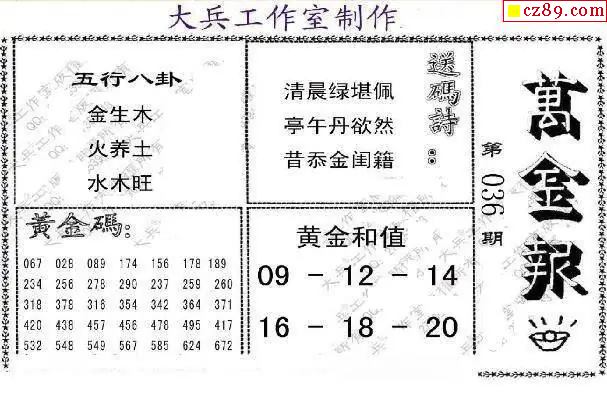 大兵工作室制作
cz89.com
五行八卦
金生木
火养土
水木旺
送碼詩：
清晨绿堪佩
亭午丹欲然
昔忝金闺籍
萬金報
第036期
黃金碼：
067 028 089 174 156 178 189
234 256 278 290 237 259 260
318 378 316 354 342 364 371
420 438 457 456 478 495 417
532 548 549 567 585 624 672
黄金和值
09 - 12 - 14
16 - 18 - 20